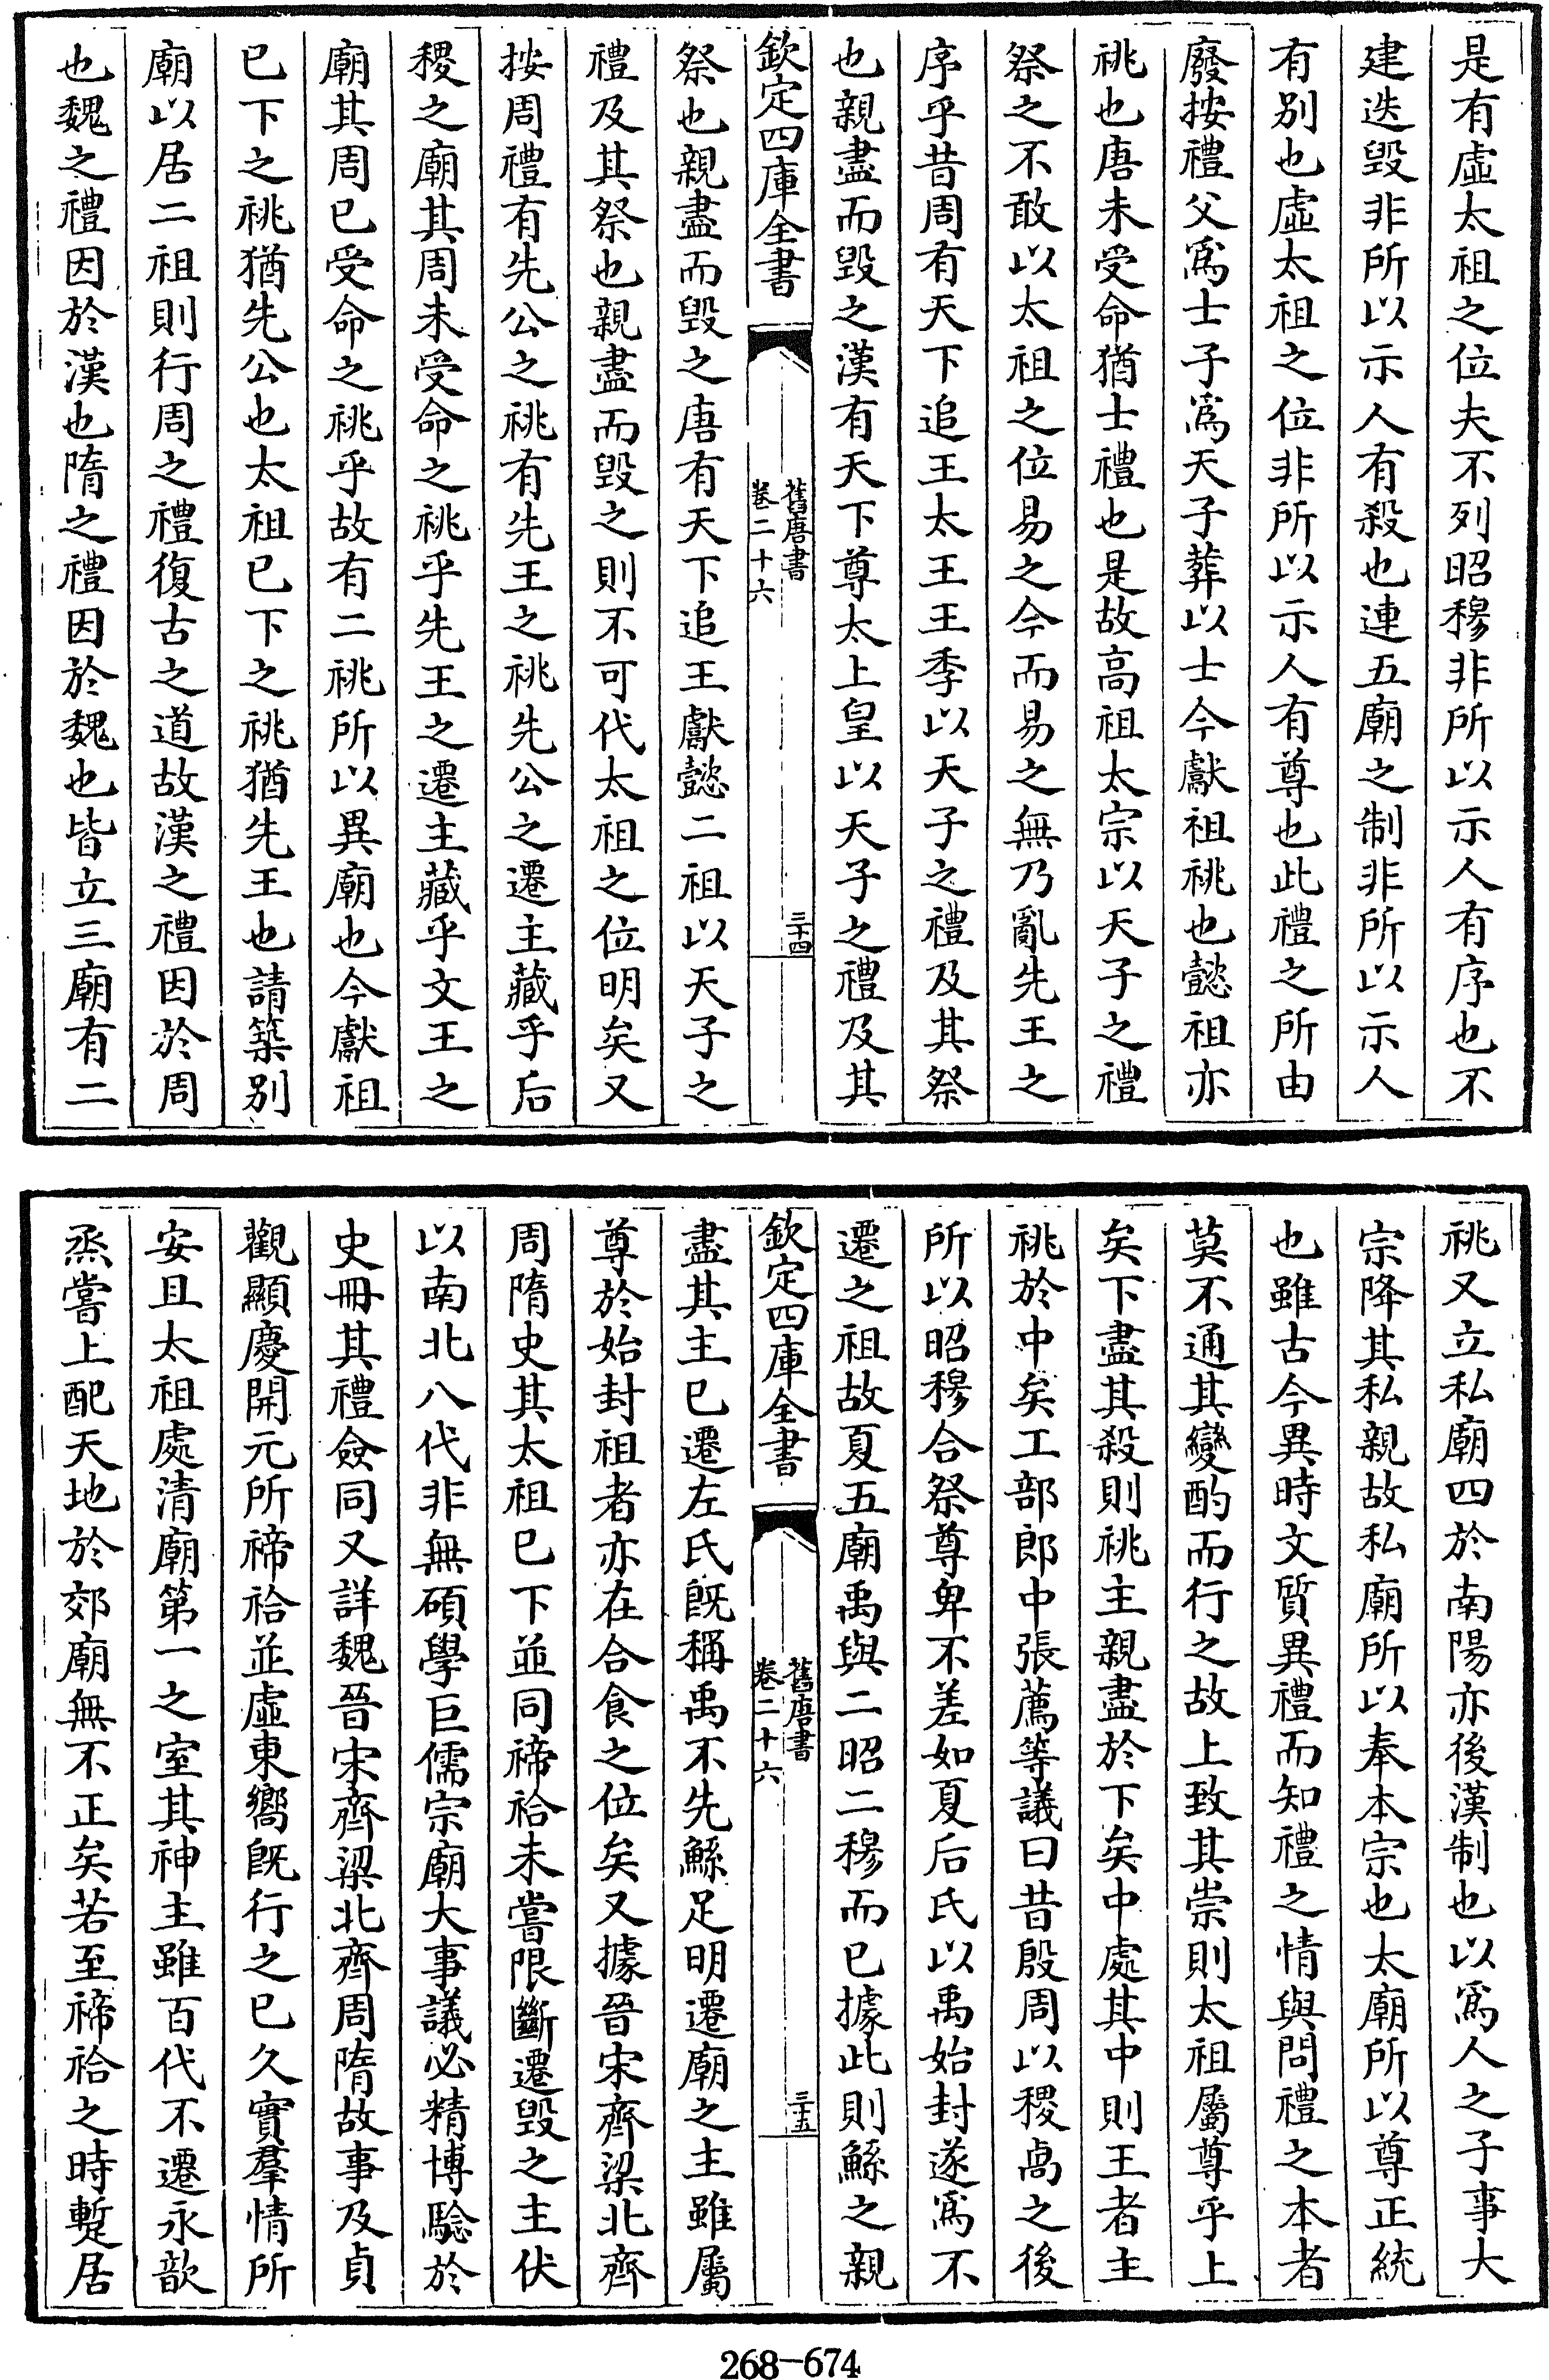 是有虛太祖之位夫不列昭穆非所以示人有序也不
建迭毀非所以示人有殺也連五廟之制非所以示人
有別也虛太祖之位非所以示人有尊也此禮之所由
廢按禮父爲士子爲天子葬以士今獻祖祧也懿祖亦
祧也唐未受命猶士禮也是故高祖太宗以天子之禮
祭之不敢以太祖之位易之今而易之無乃亂先王之
序乎昔周有天下追王太王王季以天子之禮及其祭
也親盡而毀之漢有天下尊太上皇以天子之禮及其
欽定四庫全書
舊唐書
卷二十六
三十四
祭也親盡而毀之唐有天下追王獻懿二祖以天子之
禮及其祭也親盡而毀之則不可代太祖之位明矣又
按周禮有先公之祧有先王之祧先公之遷主藏乎后
稷之廟其周未受命之祧乎先王之遷主藏乎文王之
廟其周已受命之祧乎故有二祧所以異廟也今獻祖
已下之祧猶先公也太祖已下之祧猶先王也請築別
廟以居二祖則行周之禮復古之道故漢之禮因於周
也魏之禮因於漢也隋之禮因於魏也皆立三廟有二
祧又立私廟四於南陽亦後漢制也以爲人之子事大
宗降其私親故私廟所以奉本宗也太廟所以尊正統
也雖古今異時文質異禮而知禮之情與問禮之本者
莫不通其變酌而行之故上致其崇則太祖屬尊乎上
矣下盡其殺則祧主親盡於下矣中處其中則王者主
祧於中矣工部郎中張薦等議曰昔殷周以稷卨之後
所以昭穆合祭尊卑不差如夏后氏以禹始封遂爲不
遷之祖故夏五廟禹與二昭二穆而已據此則鯀之親
欽定四庫全書
舊唐書
卷二十六
三十五
盡其主已遷左氏既稱禹不先鯀足明遷廟之主雖屬
尊於始封祖者亦在合食之位矣又據晉宋齊梁北齊
周隋史其太祖已下並同禘祫未嘗限斷遷毀之主伏
以南北八代非無碩學巨儒宗廟大事議必精博驗於
史冊其禮僉同又詳魏晉宋齊梁北齊周隋故事及貞
觀顯慶開元所禘祫並虛東嚮既行之已久實羣情所
安且太祖處清廟第一之室其神主雖百代不遷永歆
烝嘗上配天地於郊廟無不正矣若至禘祫之時暫居
268-674